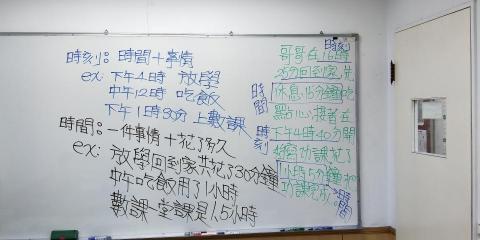 時刻：時間＋事情
ex: 下午4時 放學
中午12時 吃飯
下午1時30分 上數課
時間：一件事情＋花了多久
ex: 放學回到家共花了30分鐘
中午吃飯用了1小時
數課一堂課是1.5小時
時刻
哥哥在16時
25分回到家,先
休息15分鐘吃
點心,接著在
下午4時40分開
功課花了
1小時5分鐘把
功課完成
時間
時刻
時間